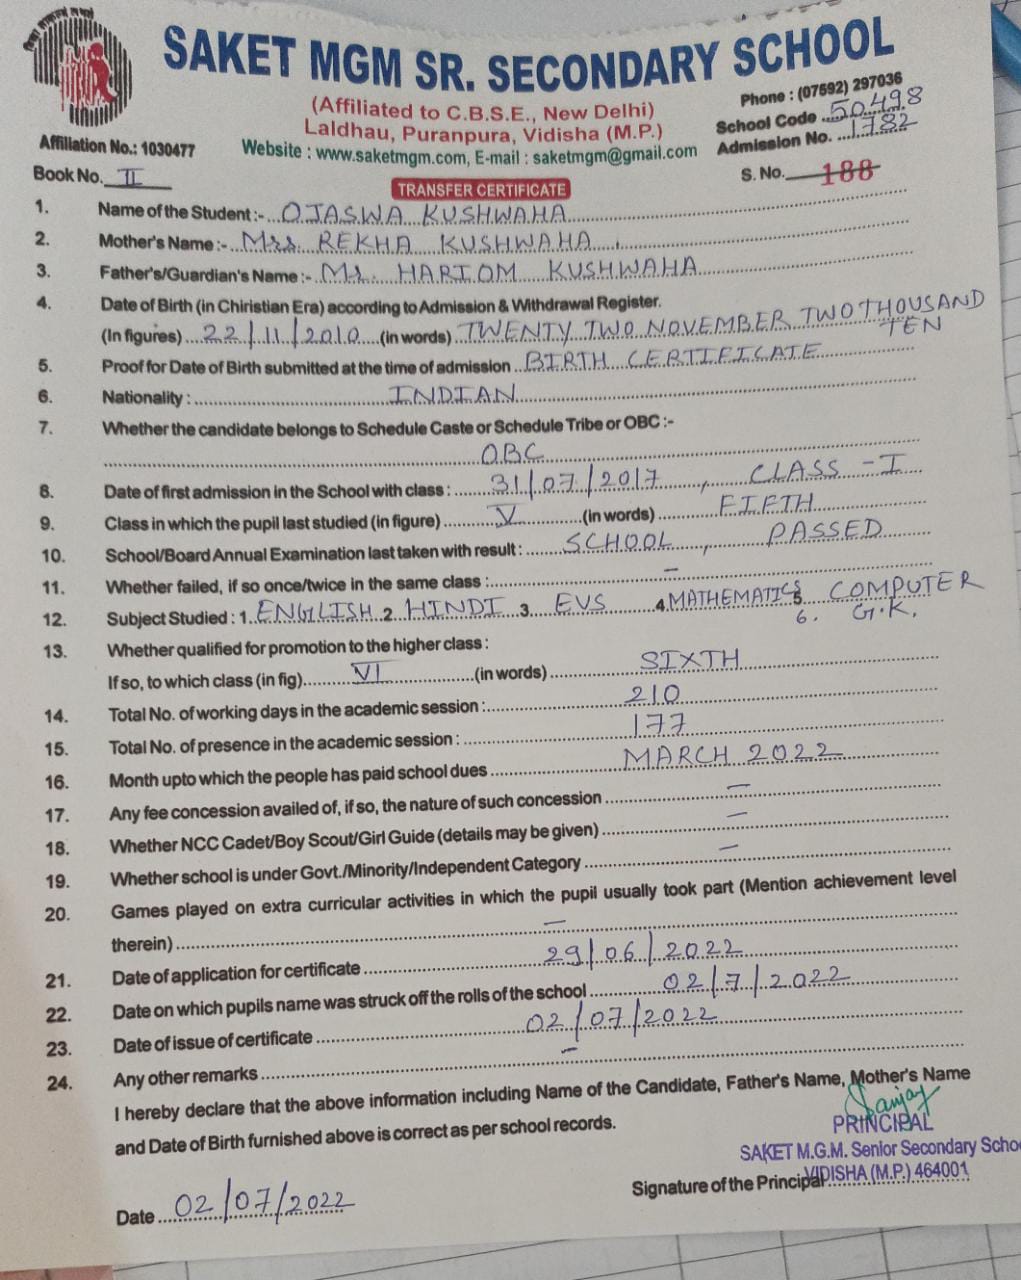 SAKET MGM SR. SECONDARY SCHOOL
(Affiliated to C.B.S.E., New Delhi)
Laldhau, Puranpura, Vidisha (M.P.)
Website : www.saketmgm.com, E-mail : saketmgm@gmail.com
Phone : (07592) 297036
School Code ..50498
Admission No. ...1782
Affiliation No.: 1030477
Book No. II
S. No. 188
TRANSFER CERTIFICATE
1. Name of the Student :- OJASWA KUSHWAHA
2. Mother's Name :- Mrs. REKHA KUSHWAHA
3. Father's/Guardian's Name :- Mr. HARIOM KUSHWAHA
4. Date of Birth (in Chiristian Era) according to Admission & Withdrawal Register.
(In figures) 22/11/2010 (in words) TWENTY TWO NOVEMBER TWO THOUSAND
TEN
5. Proof for Date of Birth submitted at the time of admission BIRTH CERTIFICATE
6. Nationality : INDIAN
7. Whether the candidate belongs to Schedule Caste or Schedule Tribe or OBC :-
OBC
8. Date of first admission in the School with class : 31/07/2017, CLASS - I
9. Class in which the pupil last studied (in figure) V (in words) FIFTH
10. School/Board Annual Examination last taken with result : SCHOOL, PASSED
11. Whether failed, if so once/twice in the same class : —
12. Subject Studied : 1. ENGLISH 2. HINDI 3. EVS 4. MATHEMATICS 5. COMPUTER
6. G.K.
13. Whether qualified for promotion to the higher class :
If so, to which class (in fig) VI (in words) SIXTH
14. Total No. of working days in the academic session : 210
15. Total No. of presence in the academic session : 177
16. Month upto which the people has paid school dues MARCH 2022
17. Any fee concession availed of, if so, the nature of such concession —
18. Whether NCC Cadet/Boy Scout/Girl Guide (details may be given) —
19. Whether school is under Govt./Minority/Independent Category —
20. Games played on extra curricular activities in which the pupil usually took part (Mention achievement level
therein) —
21. Date of application for certificate 29/06/2022
22. Date on which pupils name was struck off the rolls of the school 02/7/2022
23. Date of issue of certificate 02/07/2022
24. Any other remarks —
I hereby declare that the above information including Name of the Candidate, Father's Name, Mother's Name
and Date of Birth furnished above is correct as per school records.
Sanjay
PRINCIPAL
SAKET M.G.M. Senior Secondary Schoo
VIDISHA (M.P.) 464001
Signature of the Principal
Date 02/07/2022